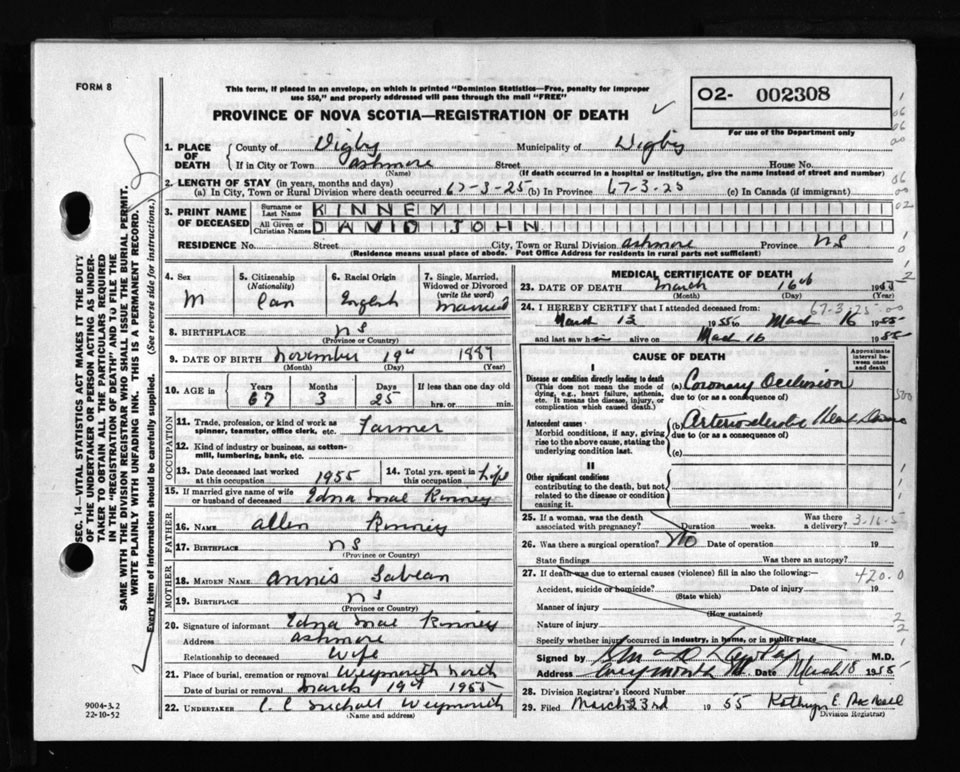 FORM 8
This form, if placed in an envelope, on which is printed "Dominion Statistics—Free, penalty for improper
use $50," and properly addressed will pass through the mail "FREE"
PROVINCE OF NOVA SCOTIA—REGISTRATION OF DEATH
O2- 002308
For use of the Department only
SEC. 14—VITAL STATISTICS ACT MAKES IT THE DUTY
OF THE UNDERTAKER OR PERSON ACTING AS UNDER-
TAKER TO OBTAIN ALL THE PARTICULARS REQUIRED
IN THE "REGISTRATION OF DEATH" AND TO FILE THE
SAME WITH THE DIVISION REGISTRAR WHO SHALL ISSUE THE BURIAL PERMIT.
WRITE PLAINLY WITH UNFADING INK. THIS IS A PERMANENT RECORD.
Every item of information should be carefully supplied. (See reverse side for instructions.)
1. PLACE OF DEATH { County of Digby Municipality of Digby
If in City or Town Ashmore Street House No.
(Name) (If death occurred in a hospital or institution, give the name instead of street and number)
2. LENGTH OF STAY (in years, months and days)
(a) In City, Town or Rural Division where death occurred 67-3-25 (b) In Province 67-3-25 (c) In Canada (if immigrant)
3. PRINT NAME OF DECEASED { Surname or Last Name KINNEY
All Given or Christian Names DAVID JOHN
RESIDENCE No. Street City, Town or Rural Division Ashmore Province NS
(Residence means usual place of abode. Post Office Address for residents in rural parts not sufficient)
4. Sex M
5. Citizenship (Nationality) Can
6. Racial Origin English
7. Single, Married, Widowed or Divorced (write the word) Married
8. BIRTHPLACE NS
(Province or Country)
9. DATE OF BIRTH November 19th 1887
(Month) (Day) (Year)
10. AGE in { Years 67 Months 3 Days 25 If less than one day old hrs. or min.
OCCUPATION
11. Trade, profession, or kind of work as spinner, teamster, office clerk, etc. Farmer
12. Kind of industry or business, as cotton-mill, lumbering, bank, etc.
13. Date deceased last worked at this occupation 1955
14. Total yrs. spent in this occupation Life
15. If married give name of wife or husband of deceased Edna Mae Kinney
FATHER
16. NAME Allen Kinney
17. BIRTHPLACE NS
(Province or Country)
MOTHER
18. MAIDEN NAME Annis Sabean
19. BIRTHPLACE NS
(Province or Country)
20. Signature of informant Edna Mae Kinney
Address Ashmore
Relationship to deceased Wife
21. Place of burial, cremation or removal Weymouth North
Date of burial or removal March 19th 1955
22. UNDERTAKER Weymouth
(Name and address)
9004-3.2
22-10-52
MEDICAL CERTIFICATE OF DEATH
23. DATE OF DEATH March 16th 1955
(Month) (Day) (Year)
67-3-25
24. I HEREBY CERTIFY that I attended deceased from:
March 13 1955 to Mach 16 1955
and last saw him alive on Mach 16 1955
CAUSE OF DEATH
Approximate interval between onset and death
I
Disease or condition directly leading to death
(This does not mean the mode of dying, e.g., heart failure, asthenia, etc. It means the disease, injury, or complication which caused death.)
(a) Coronary Occlusion
due to (or as a consequence of)
Antecedent causes
Morbid conditions, if any, giving rise to the above cause, stating the underlying condition last.
(b) Arteriosclerotic Heart Disease
due to (or as a consequence of)
(c)
II
Other significant conditions
contributing to the death, but not related to the disease or condition causing it.
25. If a woman, was the death associated with pregnancy? Duration weeks. Was there a delivery?
26. Was there a surgical operation? No Date of operation 19
State findings Was there an autopsy?
27. If death was due to external causes (violence) fill in also the following:— 420.0
Accident, suicide or homicide? Date of injury 19
(State which)
Manner of injury
(How sustained)
Nature of injury
Specify whether injury occurred in industry, in home, or in public place
Signed by M.D.
Address Weymouth Date March 18 1955
28. Division Registrar's Record Number
29. Filed March 23rd 1955 Kathryn E.
(Division Registrar)